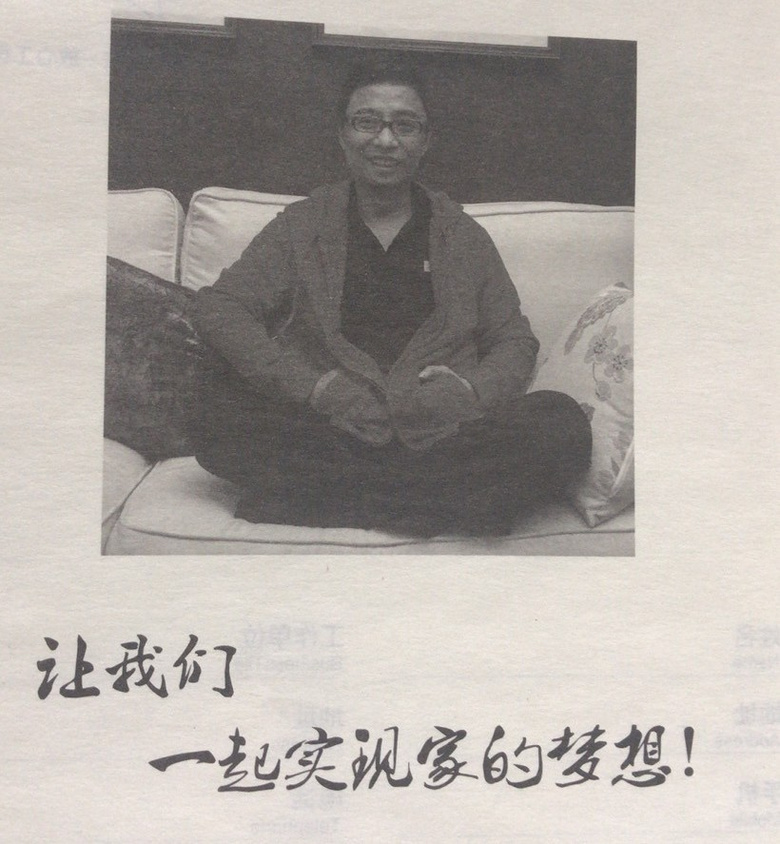 让我们
一起实现家的梦想!